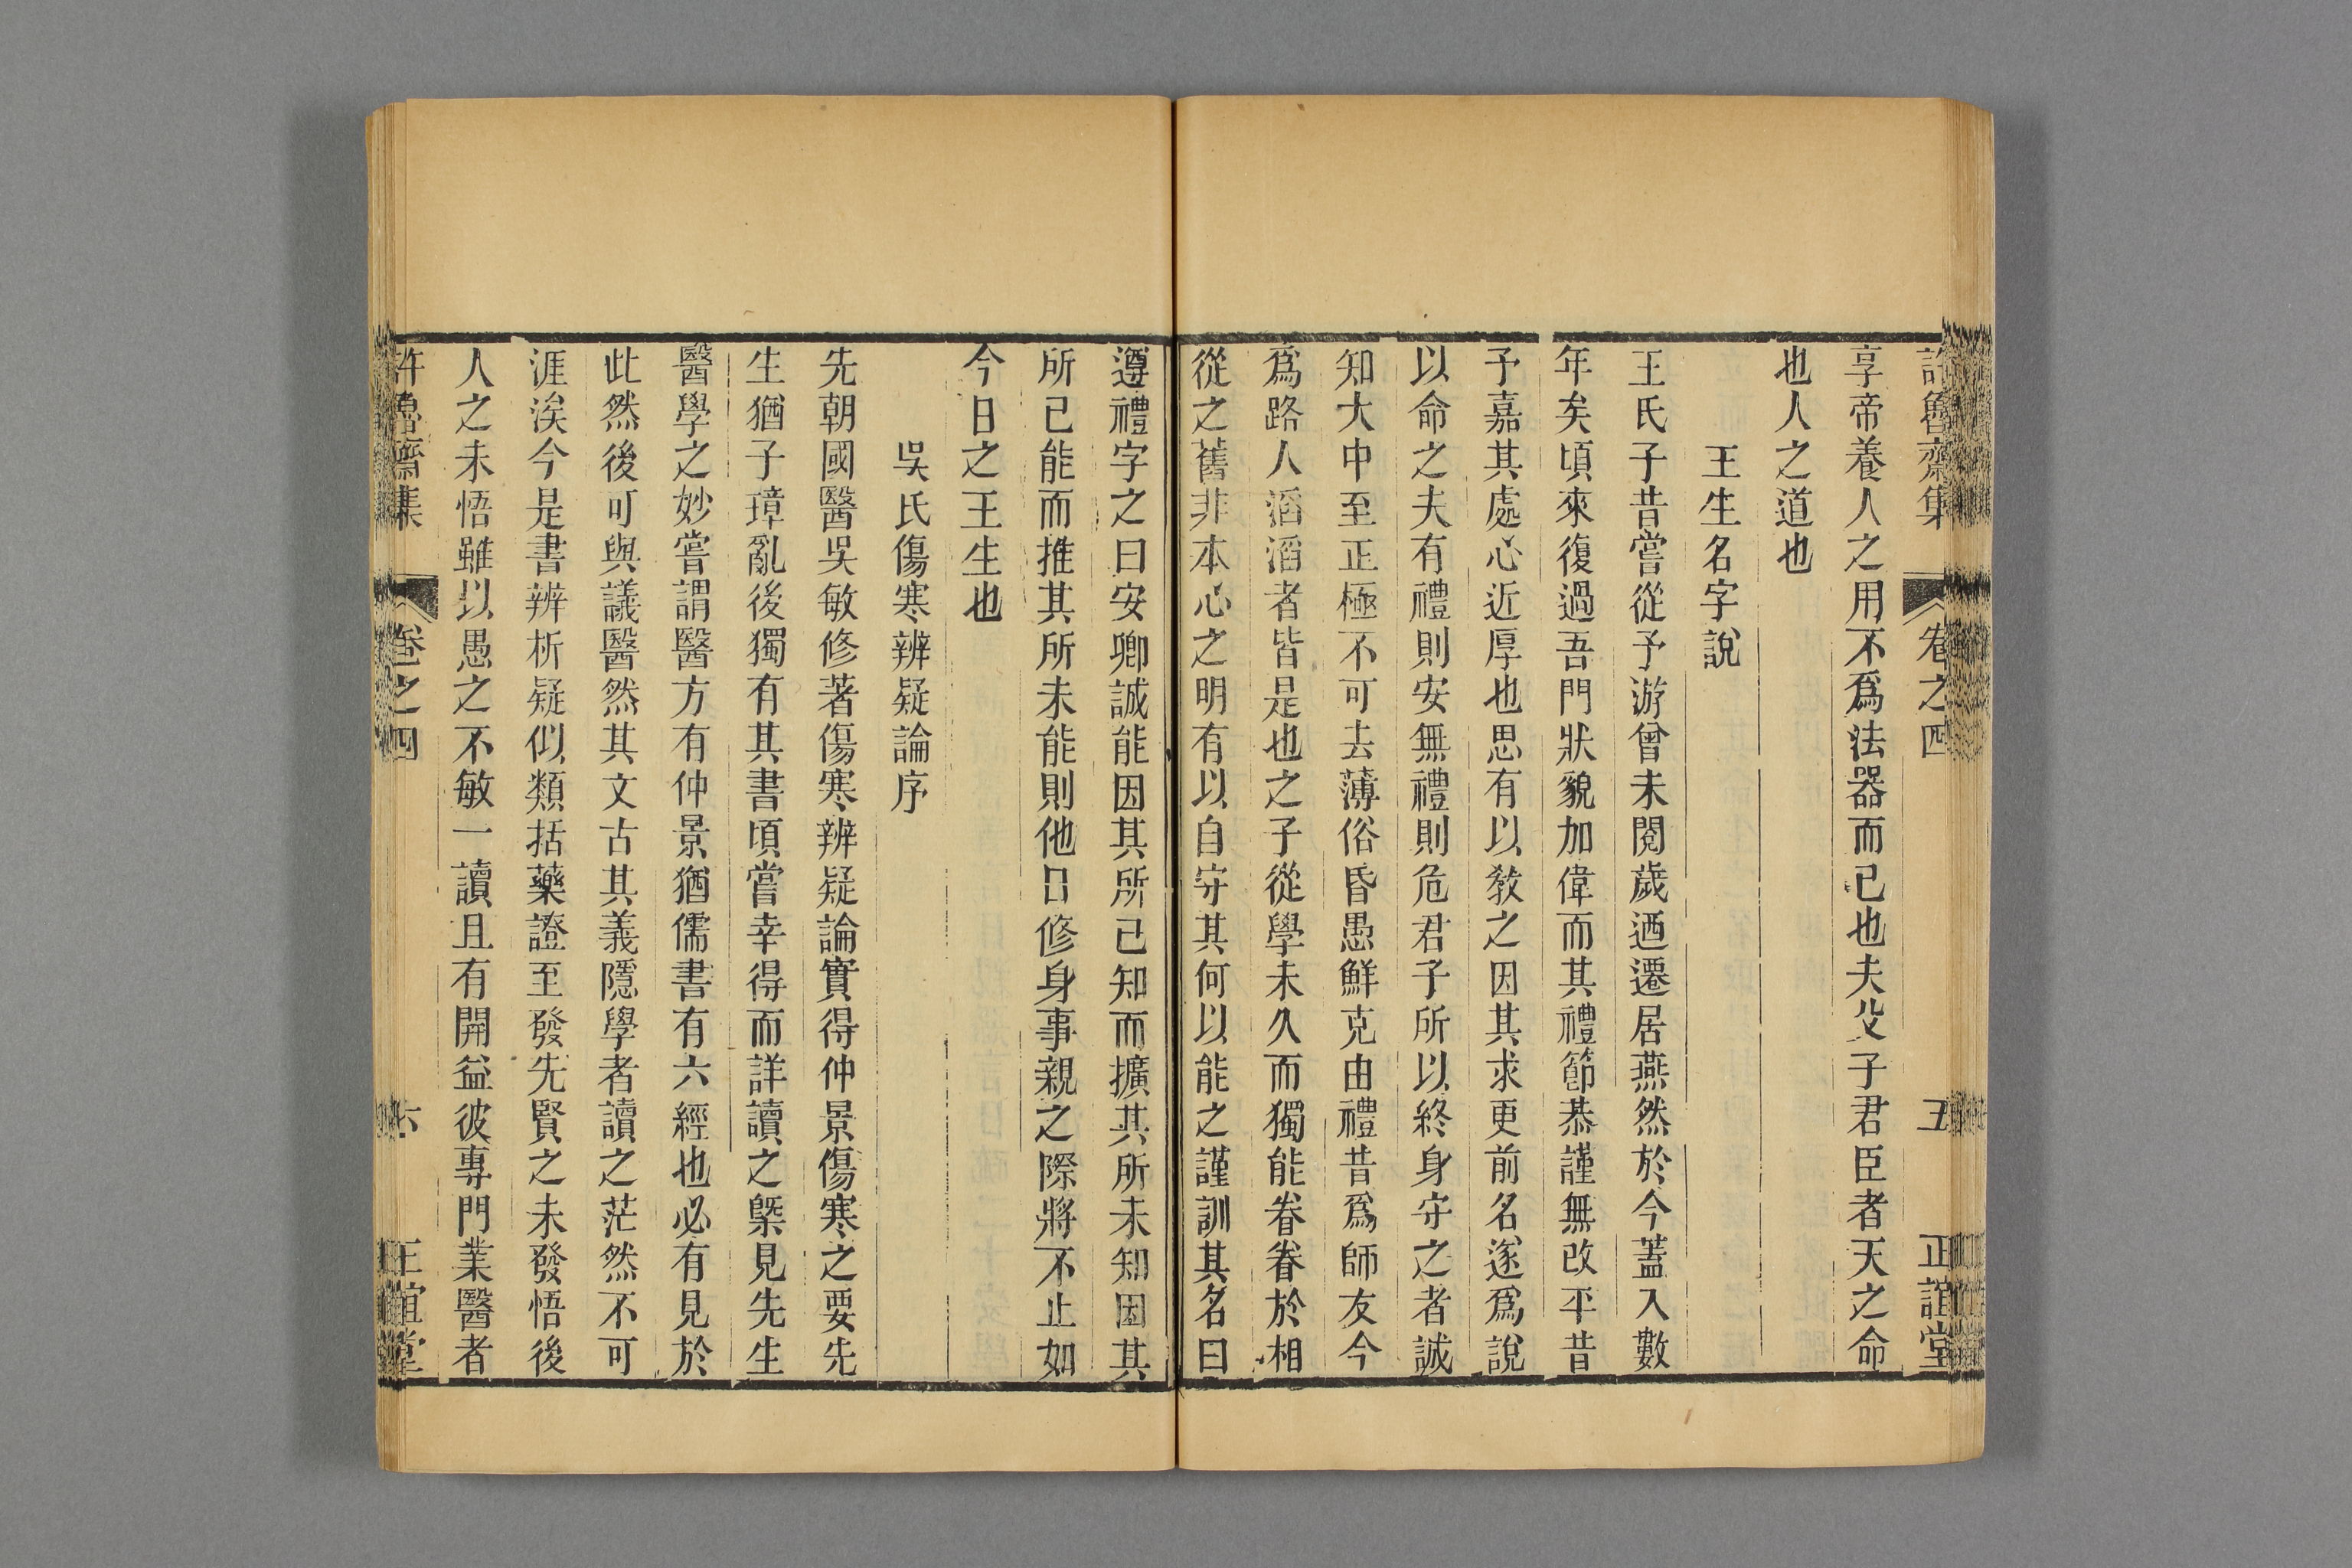 許魯齋集 卷之四 五 正誼堂
享帝養人之用不爲法器而已也夫父子君臣者天之命
也人之道也
王生名字說
王氏子昔嘗從予游曾未閱歲迺遷居燕然於今蓋入數
年矣頃來復過吾門狀貌加偉而其禮節恭謹無改平昔
予嘉其處心近厚也思有以敎之因其求更前名遂爲說
以命之夫有禮則安無禮則危君子所以終身守之者誠
知大中至正極不可去薄俗昏愚鮮克由禮昔爲師友今
爲路人滔滔者皆是也之子從學未久而獨能眷眷於相
從之舊非本心之明有以自守其何以能之謹訓其名曰
遵禮字之曰安卿誠能因其所已知而擴其所未知因其
所已能而推其所未能則他日修身事親之際將不止如
今日之王生也
吳氏傷寒辨疑論序
先朝國醫吳敏修著傷寒辨疑論實得仲景傷寒之要先
生猶子璋亂後獨有其書頃嘗幸得而詳讀之槩見先生
醫學之妙嘗謂醫方有仲景猶儒書有六經也必有見於
此然後可與議醫然其文古其義隱學者讀之茫然不可
涯涘今是書辨析疑似類括藥證至發先賢之未發悟後
人之未悟雖以愚之不敏一讀且有開益彼專門業醫者
許魯齋集 卷之四 六 正誼堂